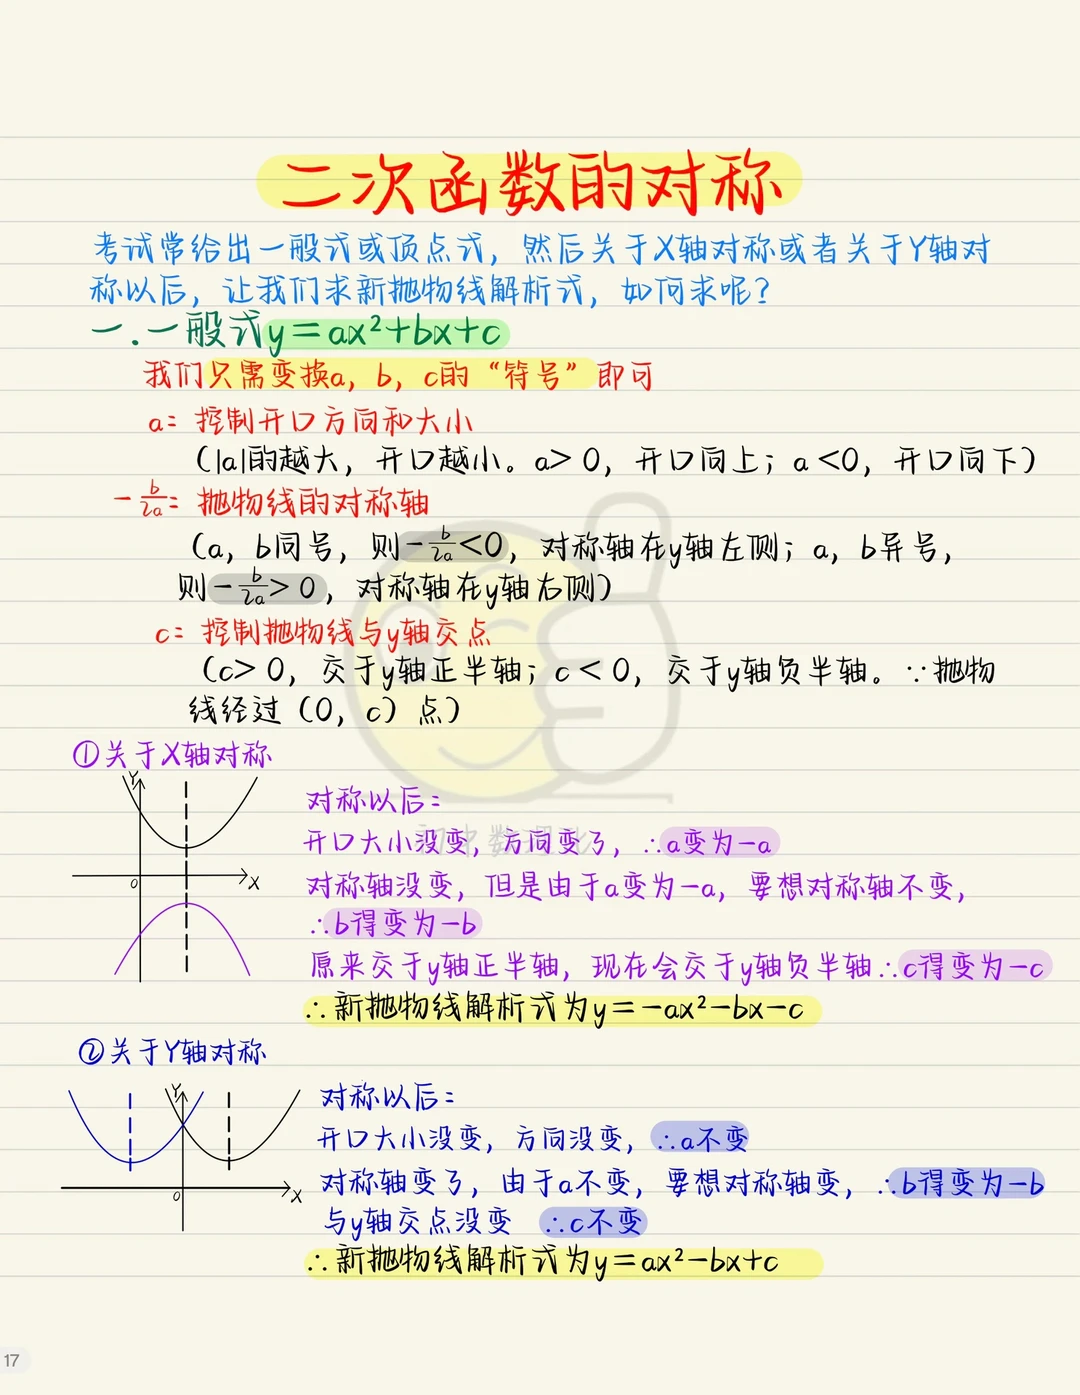 二次函数的对称
考试常给出一般式或顶点式，然后关于X轴对称或者关于Y轴对
称以后，让我们求新抛物线解析式，如何求呢？
一.一般式y=ax²+bx+c
我们只需变换a，b，c的“符号”即可
a：控制开口方向和大小
（|a|的越大，开口越小。a>0，开口向上；a<0，开口向下）
-b/2a：抛物线的对称轴
（a，b同号，则-b/2a<0，对称轴在y轴左侧；a，b异号，
则-b/2a>0，对称轴在y轴右侧）
c：控制抛物线与y轴交点
（c>0，交于y轴正半轴；c<0，交于y轴负半轴。∵抛物
线经过（0，c）点）
①关于X轴对称
Y
O
X
对称以后：
开口大小没变，方向变了，∴a变为-a
对称轴没变，但是由于a变为-a，要想对称轴不变，
∴b得变为-b
原来交于y轴正半轴，现在会交于y轴负半轴∴c得变为-c
∴新抛物线解析式为y=-ax²-bx-c
②关于Y轴对称
Y
O
X
对称以后：
开口大小没变，方向没变，∴a不变
对称轴变了，由于a不变，要想对称轴变，∴b得变为-b
与y轴交点没变 ∴c不变
∴新抛物线解析式为y=ax²-bx+c
17